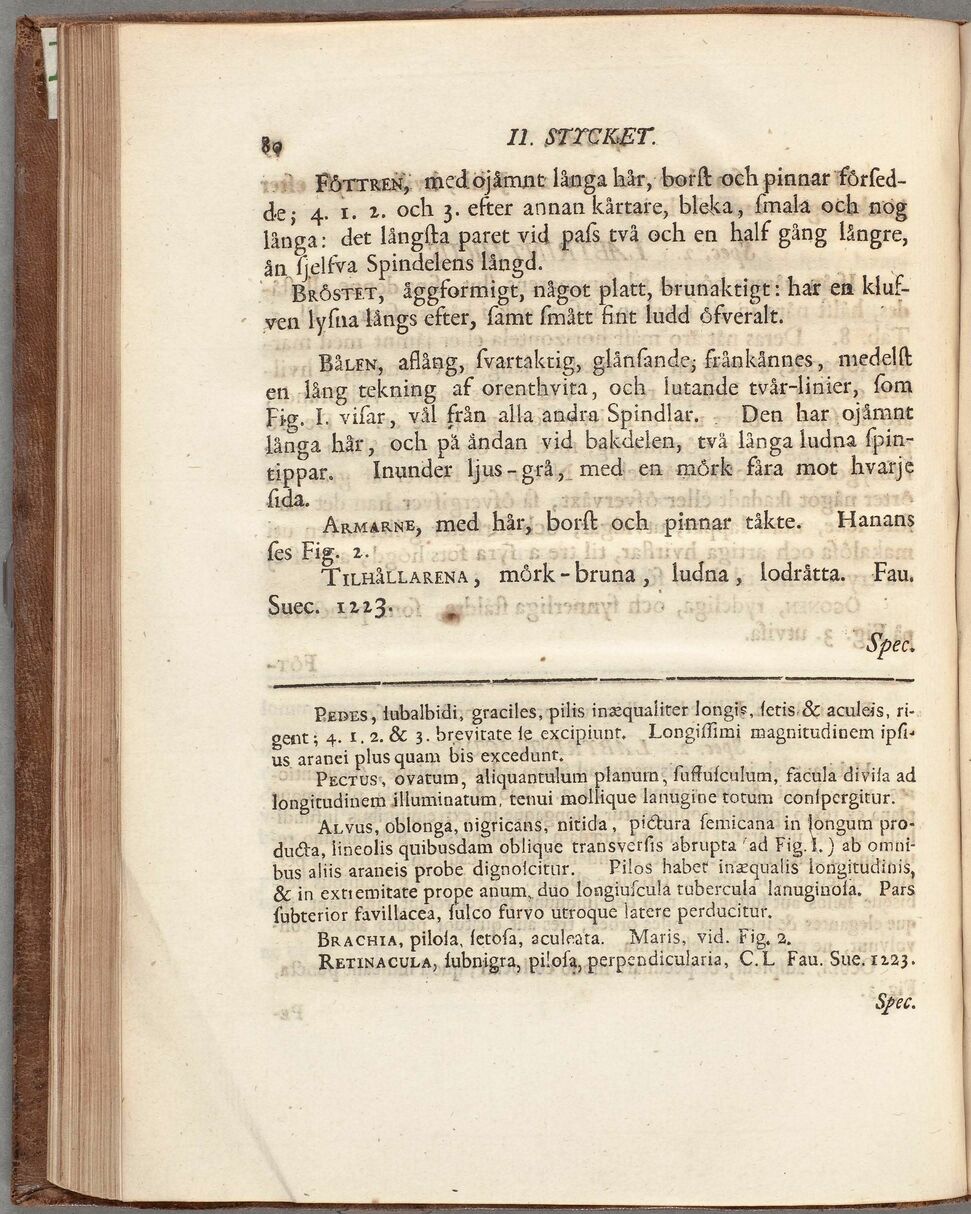 80 II. STYCKET.
FÖTTREN, med ojämnt långa hår, borſt och pinnar förſed-
de; 4. 1. 2. och 3. efter annan kårtare, bleka, ſmala och nog
långa: det långſta paret vid paſs två och en half gång långre,
ån ſjelfva Spindelens långd.
BRÖSTET, åggformigt, något platt, brunaktigt: har en kluf-
ven lyſna långs efter, ſamt ſmått fint ludd öfveralt.
BÅLEN, aflång, ſvartaktig, glånſande; frånkånnes, medelſt
en lång tekning af orenthvita, och lutande tvår-linier, ſom
Fig. I. viſar, vål från alla andra Spindlar. Den har ojåmnt
långa hår, och på åndan vid bakdelen, två långa ludna ſpin-
tippar. Inunder ljus-grå, med en mörk fåra mot hvarje
ſida.
ARMARNE, med hår, borſt och pinnar tåkte. Hanans
ſes Fig. 2.
TILHÅLLARENA, mörk-bruna, ludna, lodråtta. Fau.
Suec. 1223.
Spec.
PEDES, ſubalbidi, graciles, pilis inæqualiter longis, ſetis & aculeis, ri-
gent; 4. 1. 2. & 3. brevitate ſe excipiunt. Longiſſimi magnitudinem ipſi-
us aranei plus quam bis excedunt.
PECTUS, ovatum, aliquantulum planum, ſuffuſculum, facula diviſa ad
longitudinem illuminatum, tenui mollique lanugine totum conſpergitur.
ALVUS, oblonga, nigricans, nitida, pictura ſemicana in longum pro-
ducta, lineolis quibusdam oblique transverſis abrupta (ad Fig. I.) ab omni-
bus aliis araneis probe dignoſcitur. Pilos habet inæqualis longitudinis,
& in extremitate prope anum, duo longiuſcula tubercula lanuginoſa. Pars
ſubterior favillacea, ſulco furvo utroque latere perducitur.
BRACHIA, piloſa, ſetoſa, aculeata. Maris, vid. Fig. 2.
RETINACULA, ſubnigra, piloſa, perpendicularia, C. L Fau. Sue. 1223.
Spec.